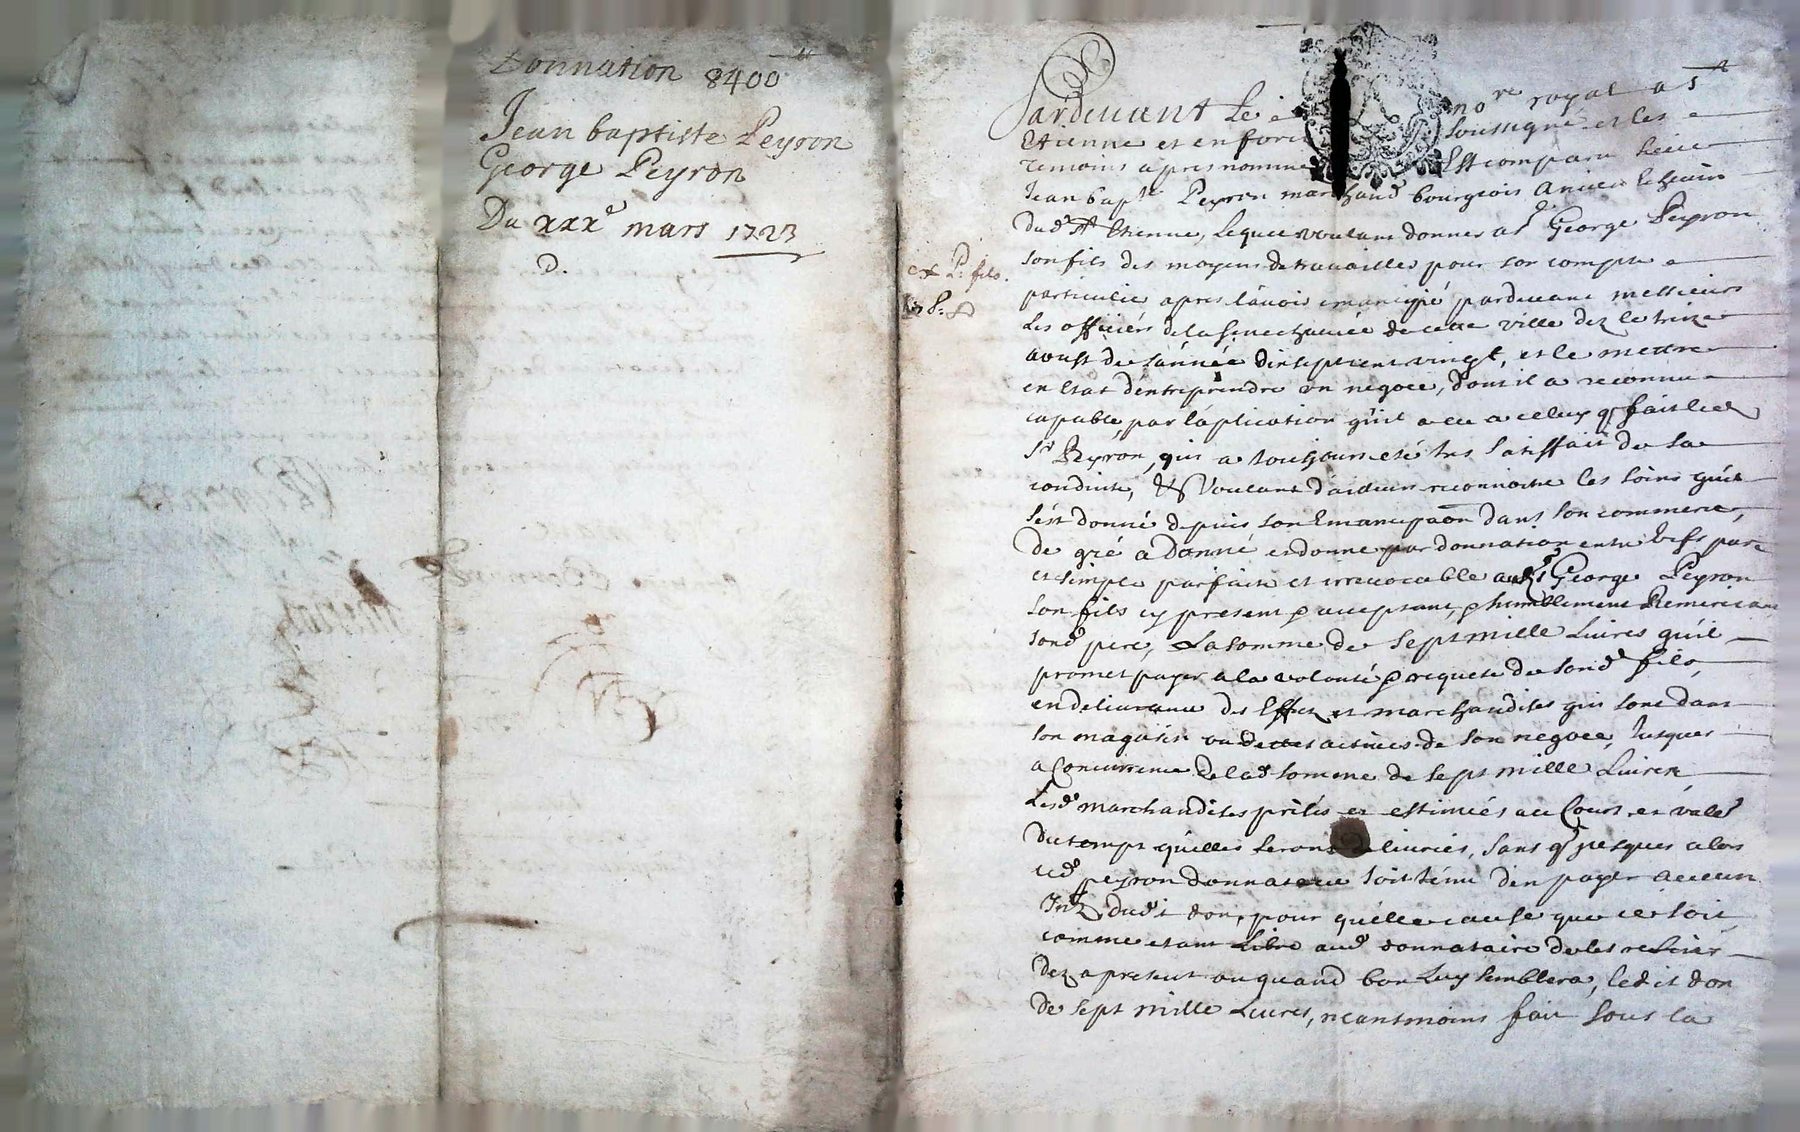 Donnation 8400 ᵗᵗ
Jean baptiste Peyron
George Peyron
Du xxxᵉ mars 1723
D.
P. fils.
Pardevant Le noʳᵉ royal a Sᵗ
Etienne et en forets soussigné et les
temoins apres nommes Est comparu sieur
Jean bapᵗᵉ Peyron marchand bourgeois Ancien Echevin
dudᵗ Sᵗ Etienne, Lequel voulant donner a Sʳ George Peyron
son fils des moyens de travailler pour son compte
particulier apres l'avoir emancipé pardevant messieurs
Les officiers de la senechaucée de cette ville dez le treize
aoust de l'année dix sept cent vingt, et le mettre
en Etat d'entreprendre un negoce, dont il a reconnu
capable, par l'aplication qu'il a eu a celuy q̃ fait led
Sʳ Peyron, qui a toujours eté tres satisfait de sa
conduite, & Voulant d'ailleurs reconnoitre les soins qu'il
s'est donné depuis son Emancipaon dans son commerce,
De gré a Donné et donne par donnation entre Vifs pure
et simple parfaite et irrevocable audᵗ Sʳ George Peyron
son fils cy present & acceptant, & humblement Remerciant
sondᵗ pere, La somme de sept mille Livres qu'il
promet payer a la volonté & requete de sondᵗ fils,
en delivrance des Effets et marchandises qui sont dans
son magasin ou dettes actives de son negoce, Jusques
a Concurrence de ladᵗ somme de sept mille Livres
Lesdᵗ marchandises prisés et estimées au Cours et valeʳ
du temps qu'elles seront delivrées, sans q̃ jusques alors
ledᵗ peyron donnateur soit tenu d'en payer aucun
Intᵗ dudit don, pour quelle cause que ce soit
comme etant Libre audᵗ donnataire de les retirer
dez a present ou quand bon Luy semblera, ledit don
de sept mille Livres, neantmoins fait sous la